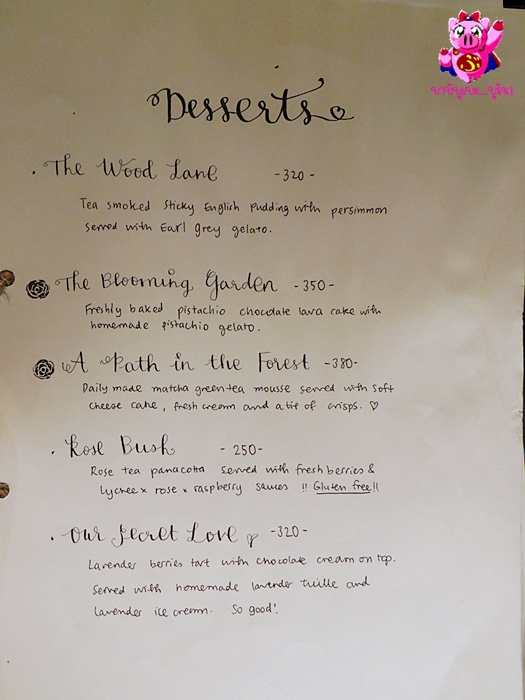 Desserts
The Wood Lane -320-
Tea smoked Sticky English Pudding with persimmon
served with Earl grey gelato.
The Blooming Garden -350-
Freshly baked pistachio chocolate lava cake with
homemade pistachio gelato.
A Path in the Forest -380-
Daily made matcha green tea mousse served with soft
cheese cake, fresh cream and a bit of crisps. ♡
Rose Bush -250-
Rose tea panacotta served with fresh berries &
lychee x rose x raspberry sauces !! Gluten free!!
Our Secret Love -320-
Lavender berries tart with chocolate cream on top.
Served with homemade lavender tuille and
lavender ice cream. So good!